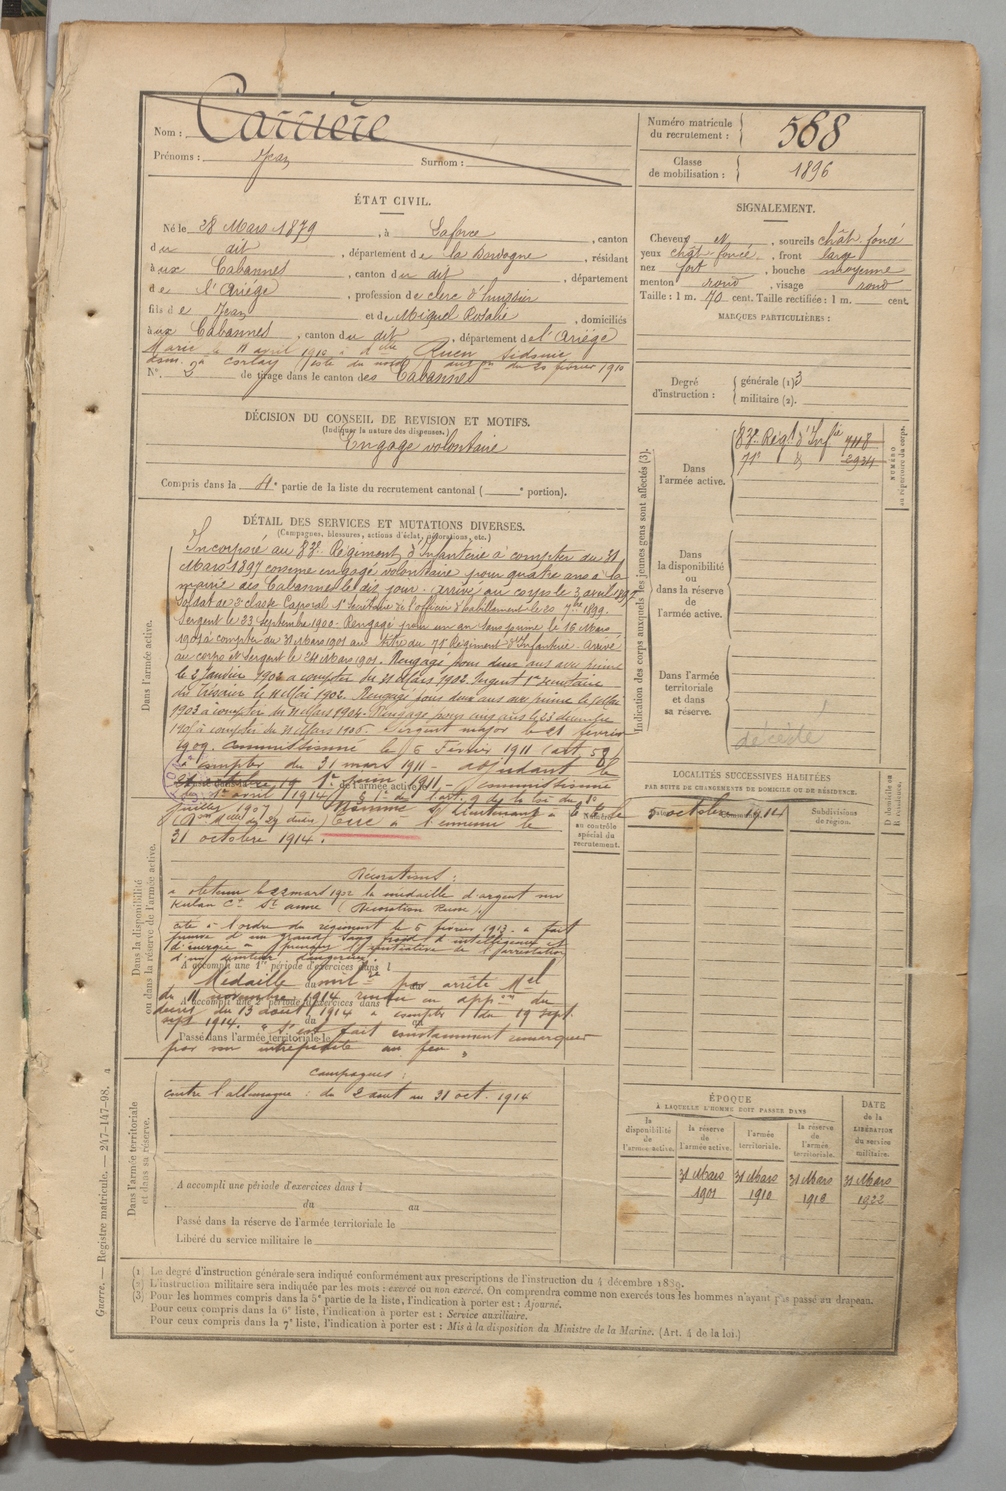 Nom : Carrière
Prénoms : Jean Surnom :
Numéro matricule du recrutement : 568
Classe de mobilisation : 1896
ÉTAT CIVIL.
Né le 28 Mars 1879, à Laforce, canton
du dit, département de la Dordogne, résidant
à ux Cabannes, canton du dit, département
de l'Ariège, profession de clerc d'huissier
fils de Jean et de Miquel Rosalie, domiciliés
à ux Cabannes, canton du dit, département de l'Ariège
Marié le 11 avril 1910 à dlle Ruen Sidonie
dom. à Corlay (Côte du nord) auton du 20 février 1910
N°. 2 de tirage dans le canton des Cabannes
SIGNALEMENT.
Cheveux N, sourcils chât. foncé
yeux chât. foncé, front large
nez fort, bouche moyenne
menton rond, visage rond
Taille : 1 m. 70 cent. Taille rectifiée : 1 m. cent.
MARQUES PARTICULIÈRES :
Degré d'instruction : générale (1) 3
militaire (2).
DÉCISION DU CONSEIL DE REVISION ET MOTIFS.
(Indiquer la nature des dispenses.)
Engagé volontaire
Compris dans la 4e partie de la liste du recrutement cantonal ( e portion).
DÉTAIL DES SERVICES ET MUTATIONS DIVERSES.
(Campagnes, blessures, actions d'éclat, décorations, etc.)
Dans l'armée active.
Incorporé au 83e Régiment d'Infanterie à compter du 31
Mars 1897 comme engagé volontaire pour quatre ans à la
mairie des Cabannes le dit jour. Arrivé au corps le 3 avril 1897
Soldat de 2e classe Caporal 1er Secrétaire de l'officier d'habillement le 20 7bre 1899.
Sergent le 23 Septembre 1900. Rengagé pour un an sans prime le 16 Mars
1901 à compter du 31 Mars 1901 au titre du 71e Régiment d'Infanterie. Arrivé
au corps et Sergent le 24 Mars 1901. Rengagé pour deux ans avec prime
le 2 Janvier 1902 à compter du 31 Mars 1902. Sergent 1er secrétaire
du Trésorier le 11 Mai 1902. Rengagé pour deux ans avec prime le
1903 à compter du 31 Mars 1904. Rengagé pour cinq ans le 25 décembre
1905 à compter du 31 Mars 1906. Sergent major le 21 février
1909. Commissionné le 6 Février 1911 (art. 58)
à compter du 31 mars 1911 - adjudant le
1er juin 1911. - commissionné
du 1er avril 1914 § 1er de l'art. 9 de la loi du 1er
juillet 1907. Nommé s/ Lieutenant à le 5 octobre 1914
(Don Mlle du 29 dudit) Tué à l'ennemi le
31 octobre 1914.
Décorations :
a obtenu le 22 mars 1902 la médaille d'argent au
ruban Ct Ste Anne (Décoration Russe)
cité à l'ordre du régiment le 6 février 1913. a fait
preuve d'un grand sang froid d'intelligence et
d'énergie
d'un
Médaille milre par arrêté Mel
du 11 novembre 1914 rendu en appon du
décret du 13 août 1914 à compter du 19 sept.
sept 1914. "S'est fait constamment remarquer
par son intrépidité au feu"
Campagnes :
contre l'allemagne : du 2 aout au 31 oct. 1914
Dans la disponibilité ou dans la réserve de l'armée active.
A accompli une 1re période d'exercices dans l
A accompli une 2e période d'exercices dans l
Passé dans l'armée territoriale le
Dans l'armée territoriale et dans sa réserve.
A accompli une période d'exercices dans l
du au
Passé dans la réserve de l'armée territoriale le
Libéré du service militaire le
Indication des corps auxquels les jeunes gens sont affectés (3).
NUMÉRO au répertoire du corps.
Dans l'armée active.
83e Régt d'Infie 7118
71e d 2934
Dans la disponibilité ou dans la réserve de l'armée active.
Dans l'armée territoriale et dans sa réserve.
décédé
LOCALITÉS SUCCESSIVES HABITÉES
PAR SUITE DE CHANGEMENTS DE DOMICILE OU DE RÉSIDENCE.
Numéro au contrôle spécial du recrutement.
Subdivisions de région.
D domicile ou R résidence.
ÉPOQUE
À LAQUELLE L'HOMME DOIT PASSER DANS
la disponibilité de l'armée active.
la réserve de l'armée active.
l'armée territoriale.
la réserve de l'armée territoriale.
DATE de la LIBÉRATION du service militaire.
31 Mars 1901
31 Mars 1910
31 Mars 1916
31 Mars 1922
(1) Le degré d'instruction générale sera indiqué conformément aux prescriptions de l'instruction du 4 décembre 1889.
(2) L'instruction militaire sera indiquée par les mots : exercé ou non exercé. On comprendra comme non exercés tous les hommes n'ayant pas passé au drapeau.
(3) Pour les hommes compris dans la 5e partie de la liste, l'indication à porter est : Ajourné.
Pour ceux compris dans la 6e liste, l'indication à porter est : Service auxiliaire.
Pour ceux compris dans la 7e liste, l'indication à porter est : Mis à la disposition du Ministre de la Marine. (Art. 4 de la loi.)
Guerre. — Registre matricule. — 247-147-98.